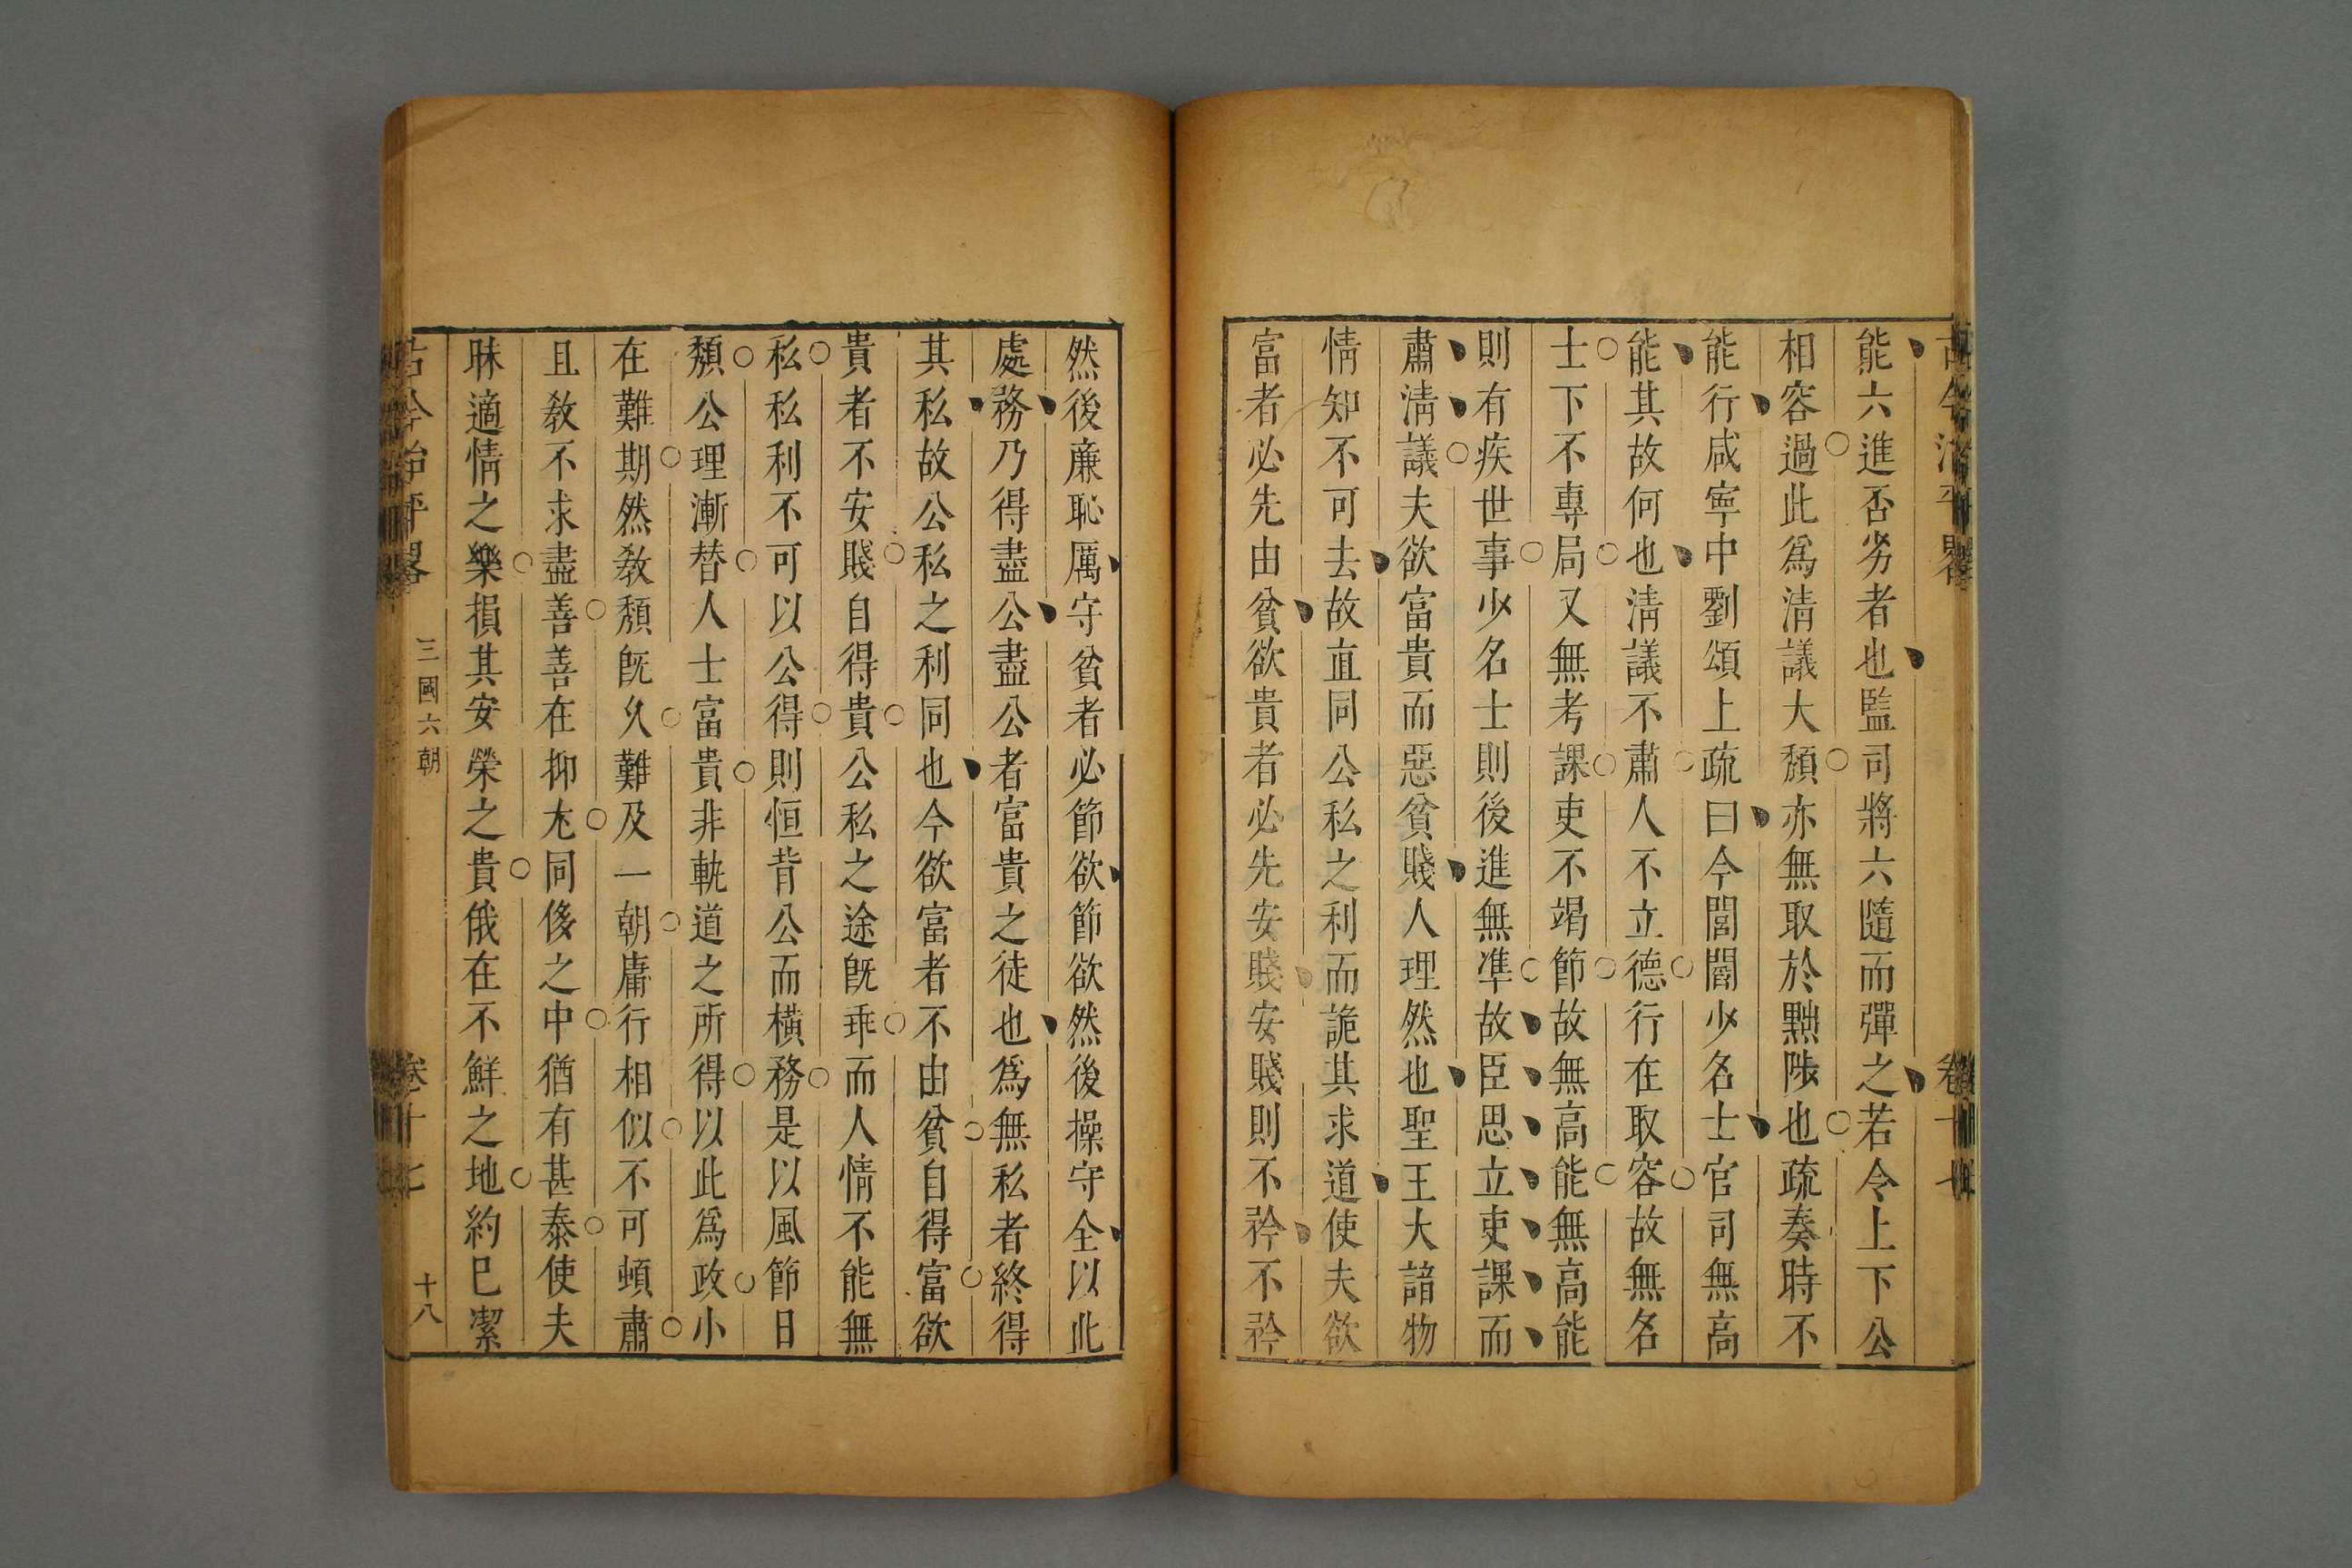 能六進否劣者也監司將六隨而彈之若令上下公
相容過此為清議大頹亦無取於黜陟也疏奏時不
能行咸寧中劉頌上疏曰今閭閻少名士官司無高
能其故何也清議不肅人不立德行在取容故無名
士下不專局又無考課吏不竭節故無高能無高能
則有疾世事少名士則後進無準故臣思立吏課而
肅清議夫欲富貴而惡貧賤人理然也聖王大諳物
情知不可去故直同公私之利而詭其求道使夫欲
富者必先由貧欲貴者必先安賤安賤則不矜不矜
然後廉恥厲守貧者必節欲節欲然後操守全以此
處務乃得盡公盡公者富貴之徒也為無私者終得
其私故公私之利同也今欲富者不由貧自得富欲
貴者不安賤自得貴公私之途旣乖而人情不能無
私私利不可以公得則恒背公而橫務是以風節日
頹公理漸替人士富貴非軌道之所得以此為政小
在難期然敎頹旣久難及一朝庸行相似不可頓肅
且敎不求盡善善在抑尢同侈之中猶有甚泰使夫
昧適情之樂損其安榮之貴俄在不鮮之地約已潔
古今治平畧 三國六朝 卷十七 十八